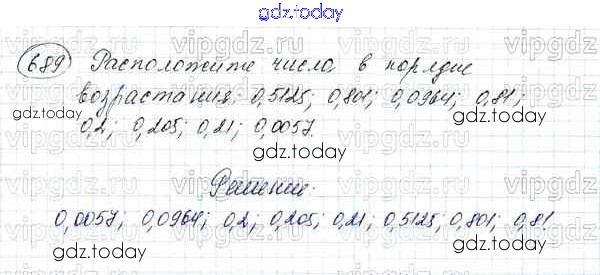 gdz.today
689 Расположите числа в порядке
возрастания: 0,5125; 0,801; 0,0964; 0,81;
0,2; 0,205; 0,21; 0,0057.
gdz.today
gdz.today
gdz.today
Решение.
0,0057; 0,0964; 0,2; 0,205; 0,21; 0,5125; 0,801; 0,81.
gdz.today
gdz.today